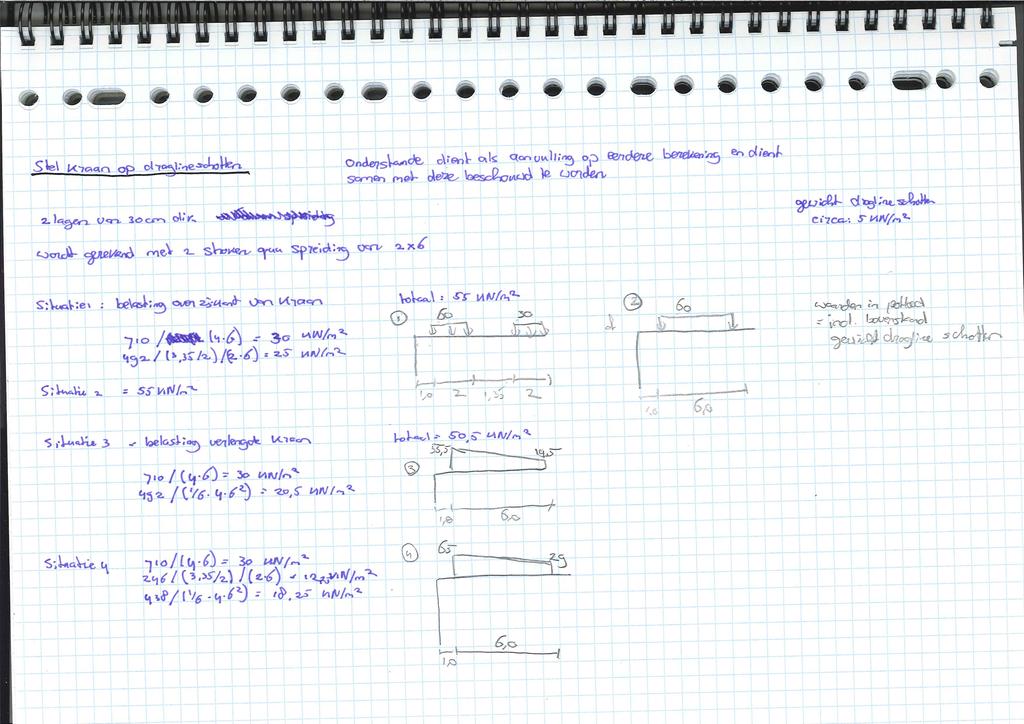 Stel kraan op draglineschotten
onderstaande dient als aanvulling op eerdere berekening en dient
samen met deze beschouwd te worden
gewicht dragline schotten
circa: 5 kN/m²
2 lagen van 30cm dik
wordt gerekend met 2 stroken qua spreiding van 2x6
Situatie 1 : belasting over zijkant van kraan
totaal: 55 kN/m²
710 / (4·6) = 30 kN/m²
492 / (3,35/2) / (2·6) = 25 kN/m²
①
60
30
1,0 2 1,35 2
②
60
1,0 6,0
waarden in potlood
= incl. bovenstaand
gewicht dragline schotten
Situatie 2 = 55 kN/m²
Situatie 3 - belasting verlengde kraan
totaal = 50,5 kN/m²
710 / (4·6) = 30 kN/m²
492 / (1/6·4·6²) = 20,5 kN/m²
③
55,5
14,5
1,0 6,0
Situatie 4
710 / (4·6) = 30 kN/m²
246 / (3,35/2) / (2·6) = kN/m²
438 / (1/6·4·6²) = 18,25 kN/m²
④
65
29
1,0 6,0